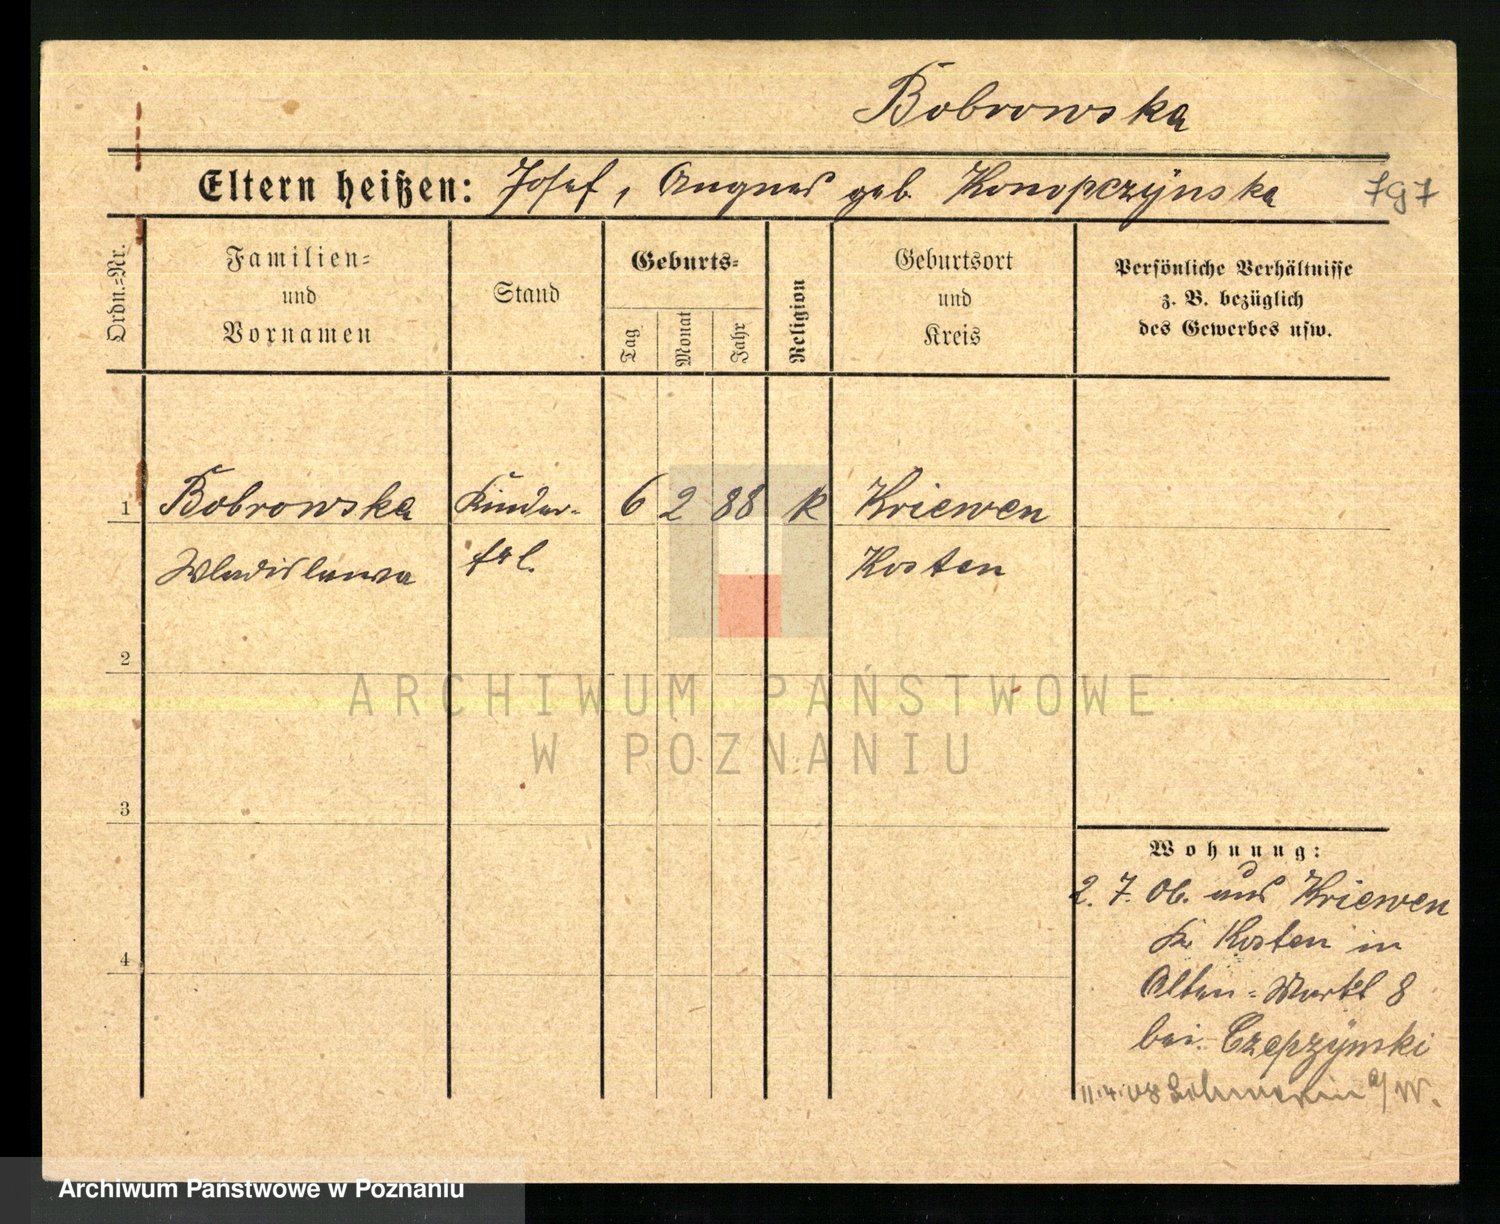 Bobrowska
Eltern heißen: Josef, Angnes geb. Konopczÿnska 797
Ordn.-Nr.
Familien-
und
Vornamen
Stand
Geburts-
Tag
Monat
Jahr
Religion
Geburtsort
und
Kreis
Persönliche Verhältnisse
z. B. bezüglich
des Gewerbes usw.
1 Bobrowska Kinder- 6 2 88 k Kriewen
Wladislawa frl. Kosten
2
ARCHIWUM PAŃSTWOWE
W POZNANIU
3
Wohnung:
2. 7. 06. aus Kriewen
Kr. Kosten in
4
Alten-Markt 8
bei Czepzÿnski
11.4.08
Archiwum Państwowe w Poznaniu